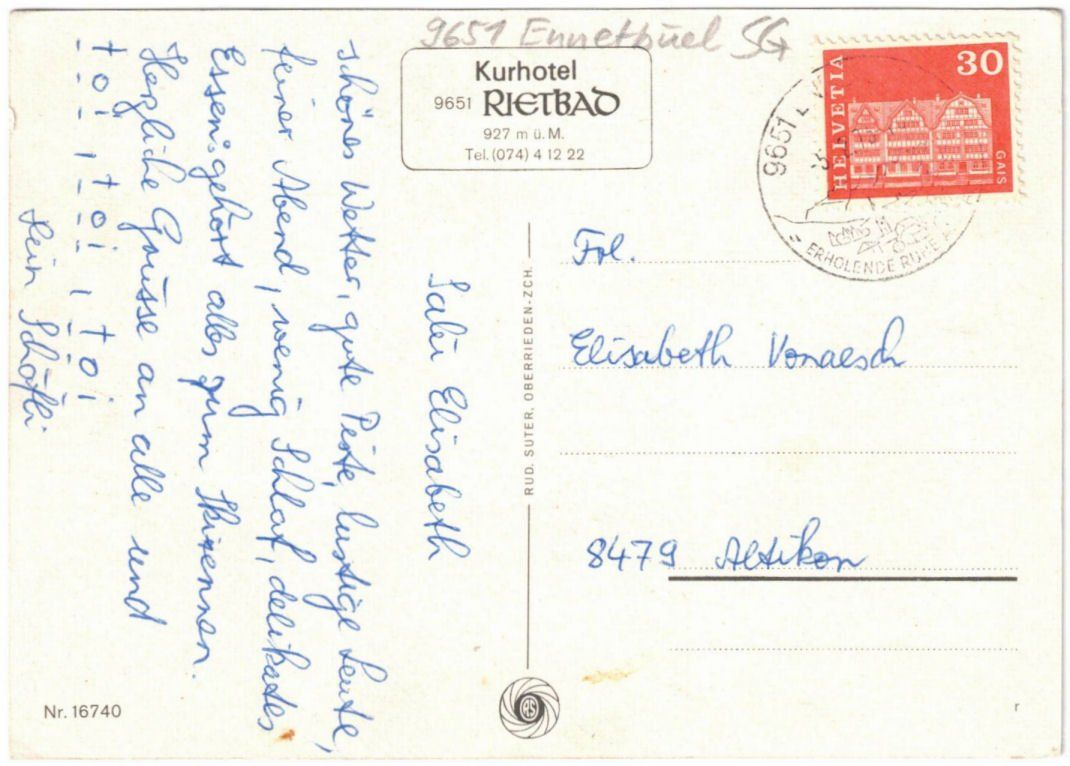 9651 Ennetbüel SG
Kurhotel
9651 RIETBAD
927 m ü. M.
Tel. (074) 4 12 22
HELVETIA
30
GAIS
9651
ERHOLENDE RUHE
Salü Elisabeth
schönes Wetter, gute Piste, lustige Leute,
feiner Abend, wenig Schlaf, delikates
Essen gehört alles zum Skirennen.
Herzliche Grüsse an alle und
toi toi toi
Dein Schöfli
RUD. SUTER, OBERRIEDEN-ZCH.
Frl.
Elisabeth Vonaesch
8479 Altikon
Nr. 16740
RS
r